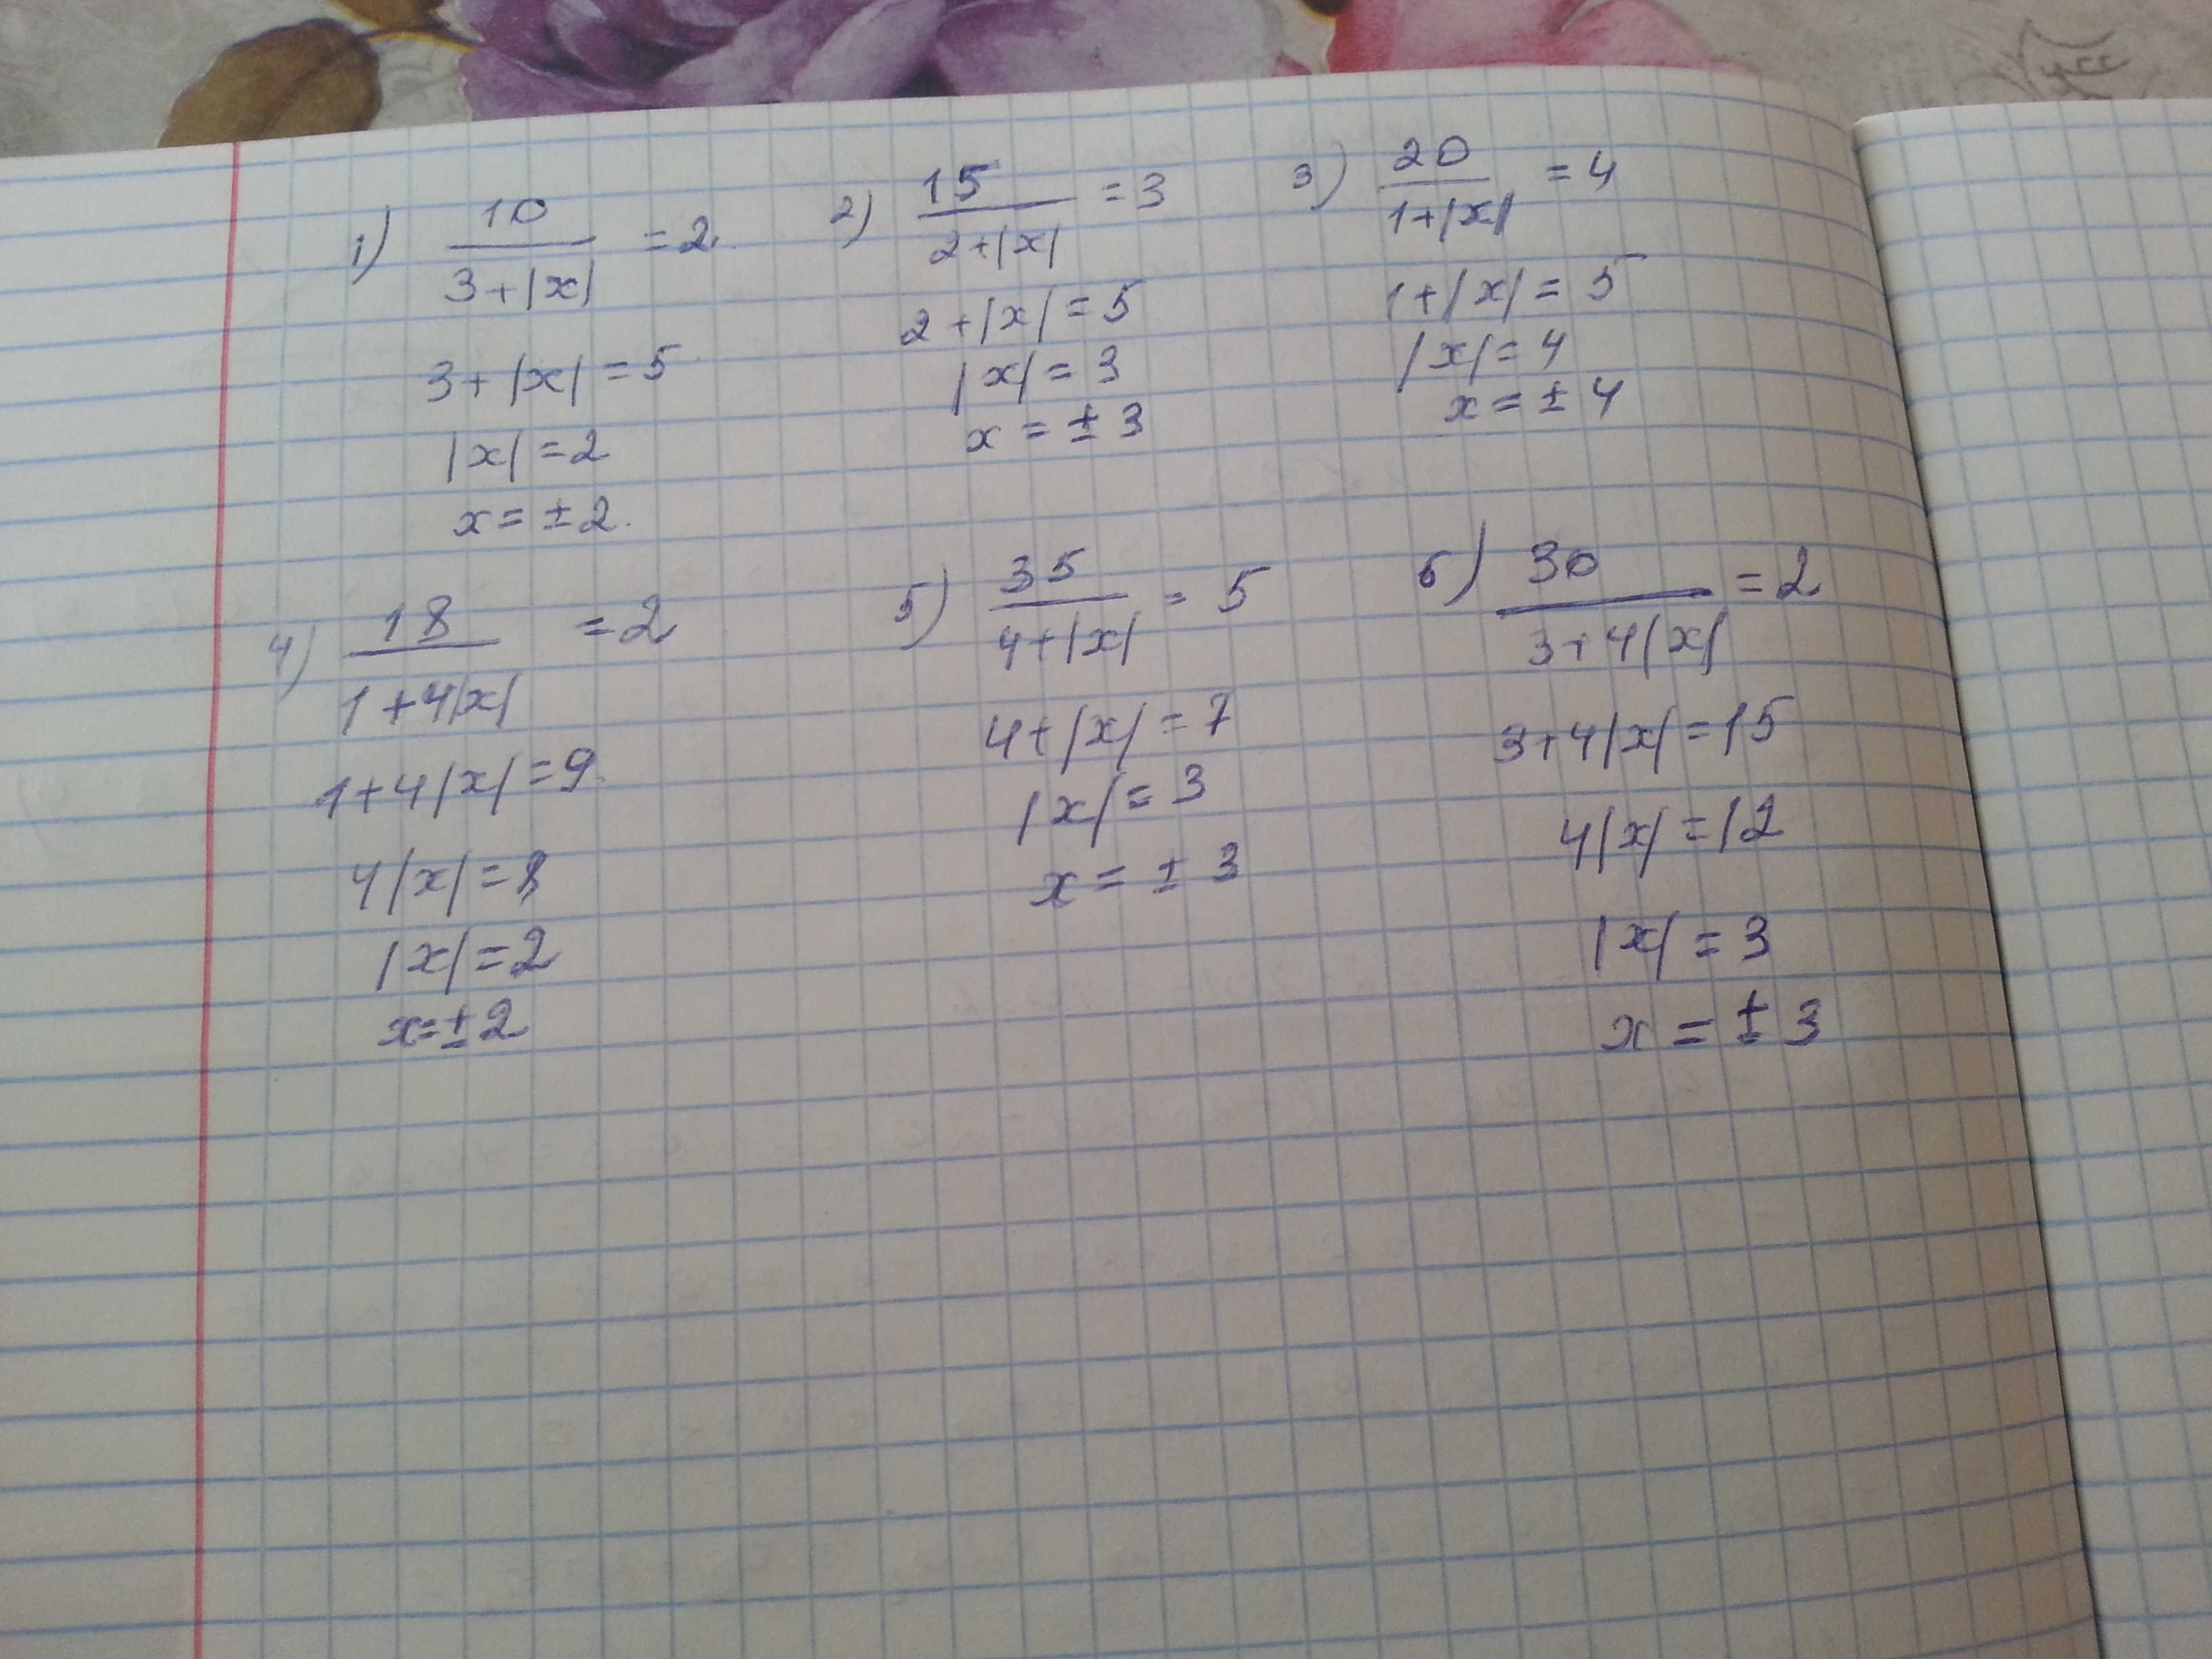 1) 10/(3+|x|) = 2.
3+|x|=5.
|x|=2
x=±2.
2) 15/(2+|x|) = 3
2+|x|=5
|x|=3
x=±3
3) 20/(1+|x|) = 4
1+|x|=5
|x|=4
x=±4
4) 18/(1+4|x|) = 2
1+4|x|=9.
4|x|=8
|x|=2
x=±2
5) 35/(4+|x|) = 5
4+|x|=7
|x|=3
x=±3
6) 30/(3+4|x|) = 2
3+4|x|=15
4|x|=12
|x|=3
x=±3